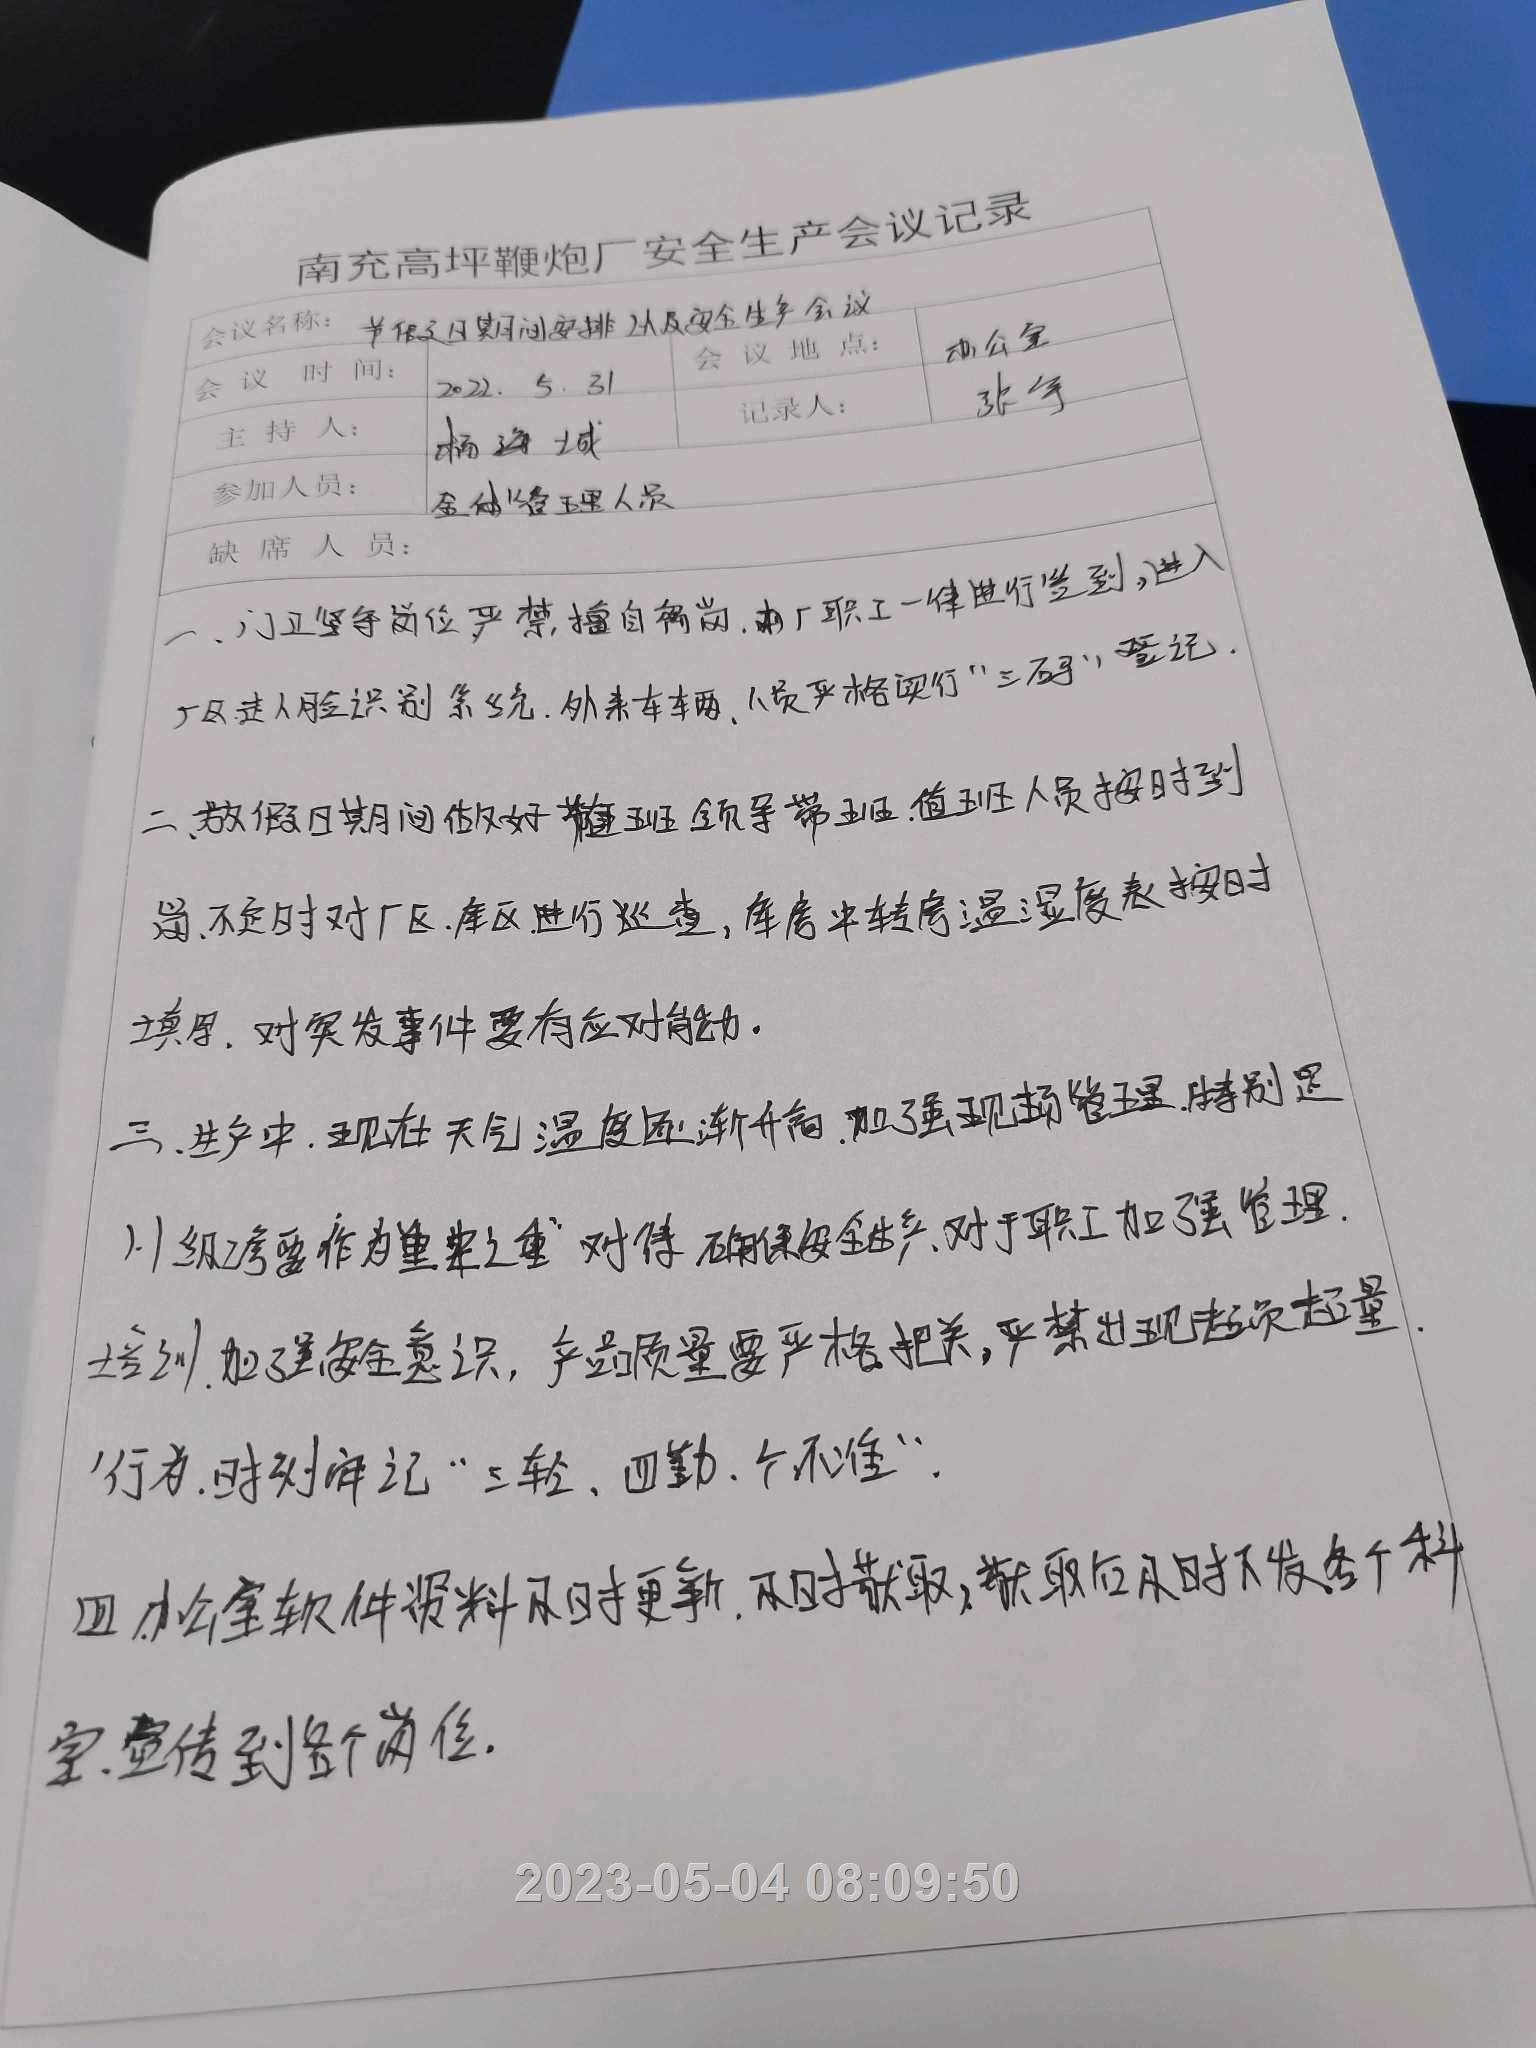 南充高坪鞭炮厂安全生产会议记录
会议名称： 节假日期间安排以及安全生产会议
会议时间： 2022.5.31 会议地点： 办公室
主持人： 杨海域 记录人： 张宇
参加人员： 全体管理人员
缺席人员：
一、门卫坚守岗位严禁擅自离岗.本厂职工一律进行签到,进入
厂区进人脸识别系统.外来车辆、人员严格实行"三码"登记.
二、放假日期间做好值班领导带班.值班人员按时到
岗、不定时对厂区.库区进行巡查,库房中转房温湿度表按时
填写.对突发事件要有应对能力.
三、生产中.现在天气温度逐渐升高.加强现场管理.特别是
级 要作为重中之重"对待 确保安全生产、对于职工加强管理.
培训.加强安全意识,产品质量要严格把关,严禁出现超员超量.
行为.时刻牢记"三轻、四勤. 个不准".
四.办公室软件资料及时更新.及时获取,获取后及时下发各个科
室.宣传到各个岗位.
2023-05-04 08:09:50